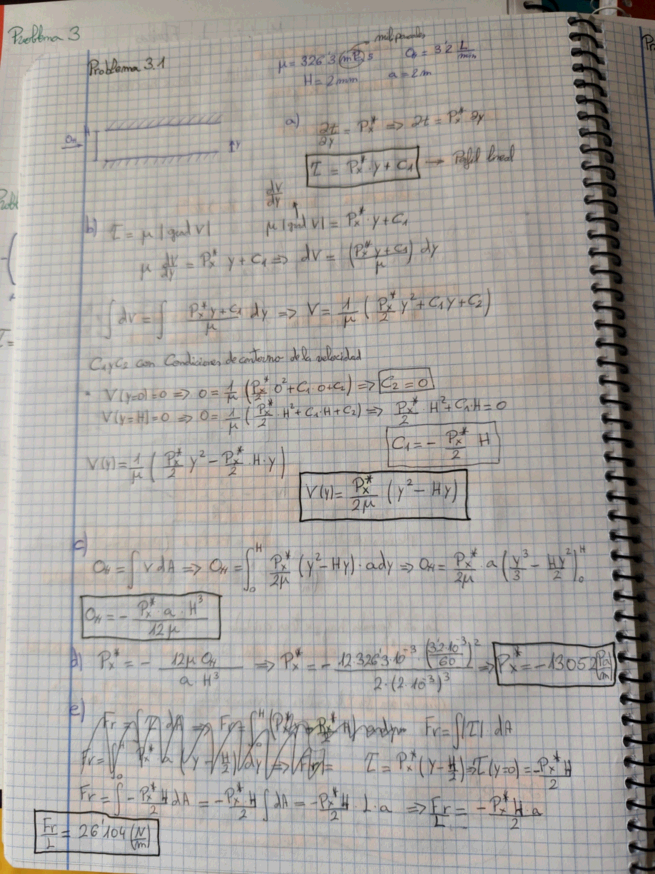 Problema 3
Problema 3.1
μ = 326'3 mPa·s
milipascales
Q_H = 3'2 L/min
H = 2mm a = 2m
a) ∂τ/∂y = P_x* ⇒ ∂τ = P_x* ∂y
τ = P_x* · y + C₁ → Perfil lineal
b) τ = μ |grad V|
dV/dy
μ |grad V| = P_x* y + C₁
μ dV/dy = P_x* y + C₁ ⇒ dV = (P_x* y + C₁)/μ dy
∫ dV = ∫ (P_x* y + C₁)/μ dy ⇒ V = 1/μ (P_x*/2 y² + C₁y + C₂)
C₁ y C₂ con Condiciones de contorno de la velocidad
· V(y=0) = 0 ⇒ 0 = 1/μ (P_x*/2 0² + C₁·0 + C₂) ⇒ C₂ = 0
V(y=H) = 0 ⇒ 0 = 1/μ (P_x*/2 H² + C₁·H + C₂) ⇒ P_x*/2 H² + C₁·H = 0
C₁ = - P_x*/2 H
V(y) = 1/μ (P_x*/2 y² - P_x*/2 H·y)
V(y) = P_x*/2μ (y² - Hy)
c)
Q_H = ∫ v dA ⇒ Q_H = ∫₀^H P_x*/2μ (y² - Hy) · a dy ⇒ Q_H = P_x*/2μ a (y³/3 - Hy²/2)₀^H
Q_H = - P_x* a · H³/12μ
d) P_x* = - 12μ Q_H/a H³ ⇒ P_x* = - 12·326'3·10⁻³ · (3'2·10⁻³/60)²/2·(2·10⁻³)³ ⇒ P_x* = -13052 [Pa/m]
e)
Fr = ∫|τ| dA
τ = P_x* (y - H/2) ⇒ τ(y=0) = -P_x*/2 H
Fr = ∫ -P_x*/2 H dA = -P_x*/2 H ∫ dA = -P_x*/2 H · L · a ⇒ Fr/L = -P_x* H/2 a
Fr/L = 26'104 (N/m)